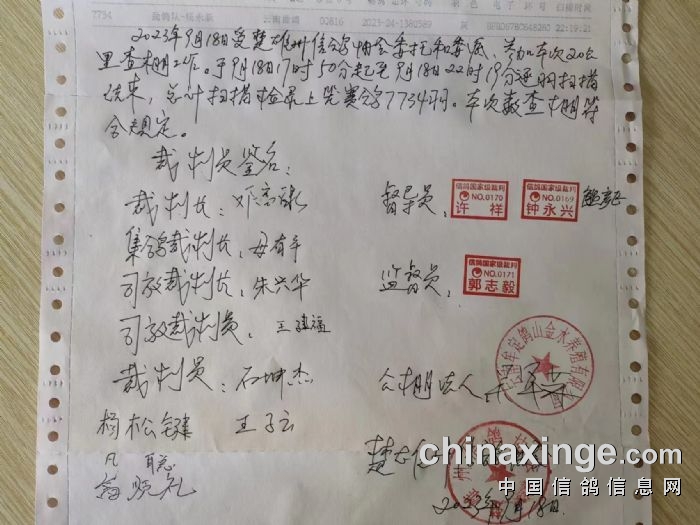 7734 02816 2023-24-1380589 22:19:21
2023年9月18日受楚雄州信鸽协会委托和委派，参加本次200公
里查棚工作。于9月18日17时50分起至9月18日22时19分逐羽扫描
结束，总计扫描检录上笼赛鸽7734羽。本次数查棚符
合规定。
裁判员签名：
裁判长：邓
督导员：
信鸽国家级裁判
NO.0170
许祥
信鸽国家级裁判
NO.0169
钟永兴
集鸽裁判长：毋有平
司放裁判长：朱兴华
监督员：
信鸽国家级裁判
NO.0171
郭志毅
司放裁判员：王建福
裁判员：石坤杰
公棚法人
牟定鸽山金水养殖有限公司
杨松键 王子云
凡聪
2023年9月18日
chinaxinge.com
中国信鸽信息网